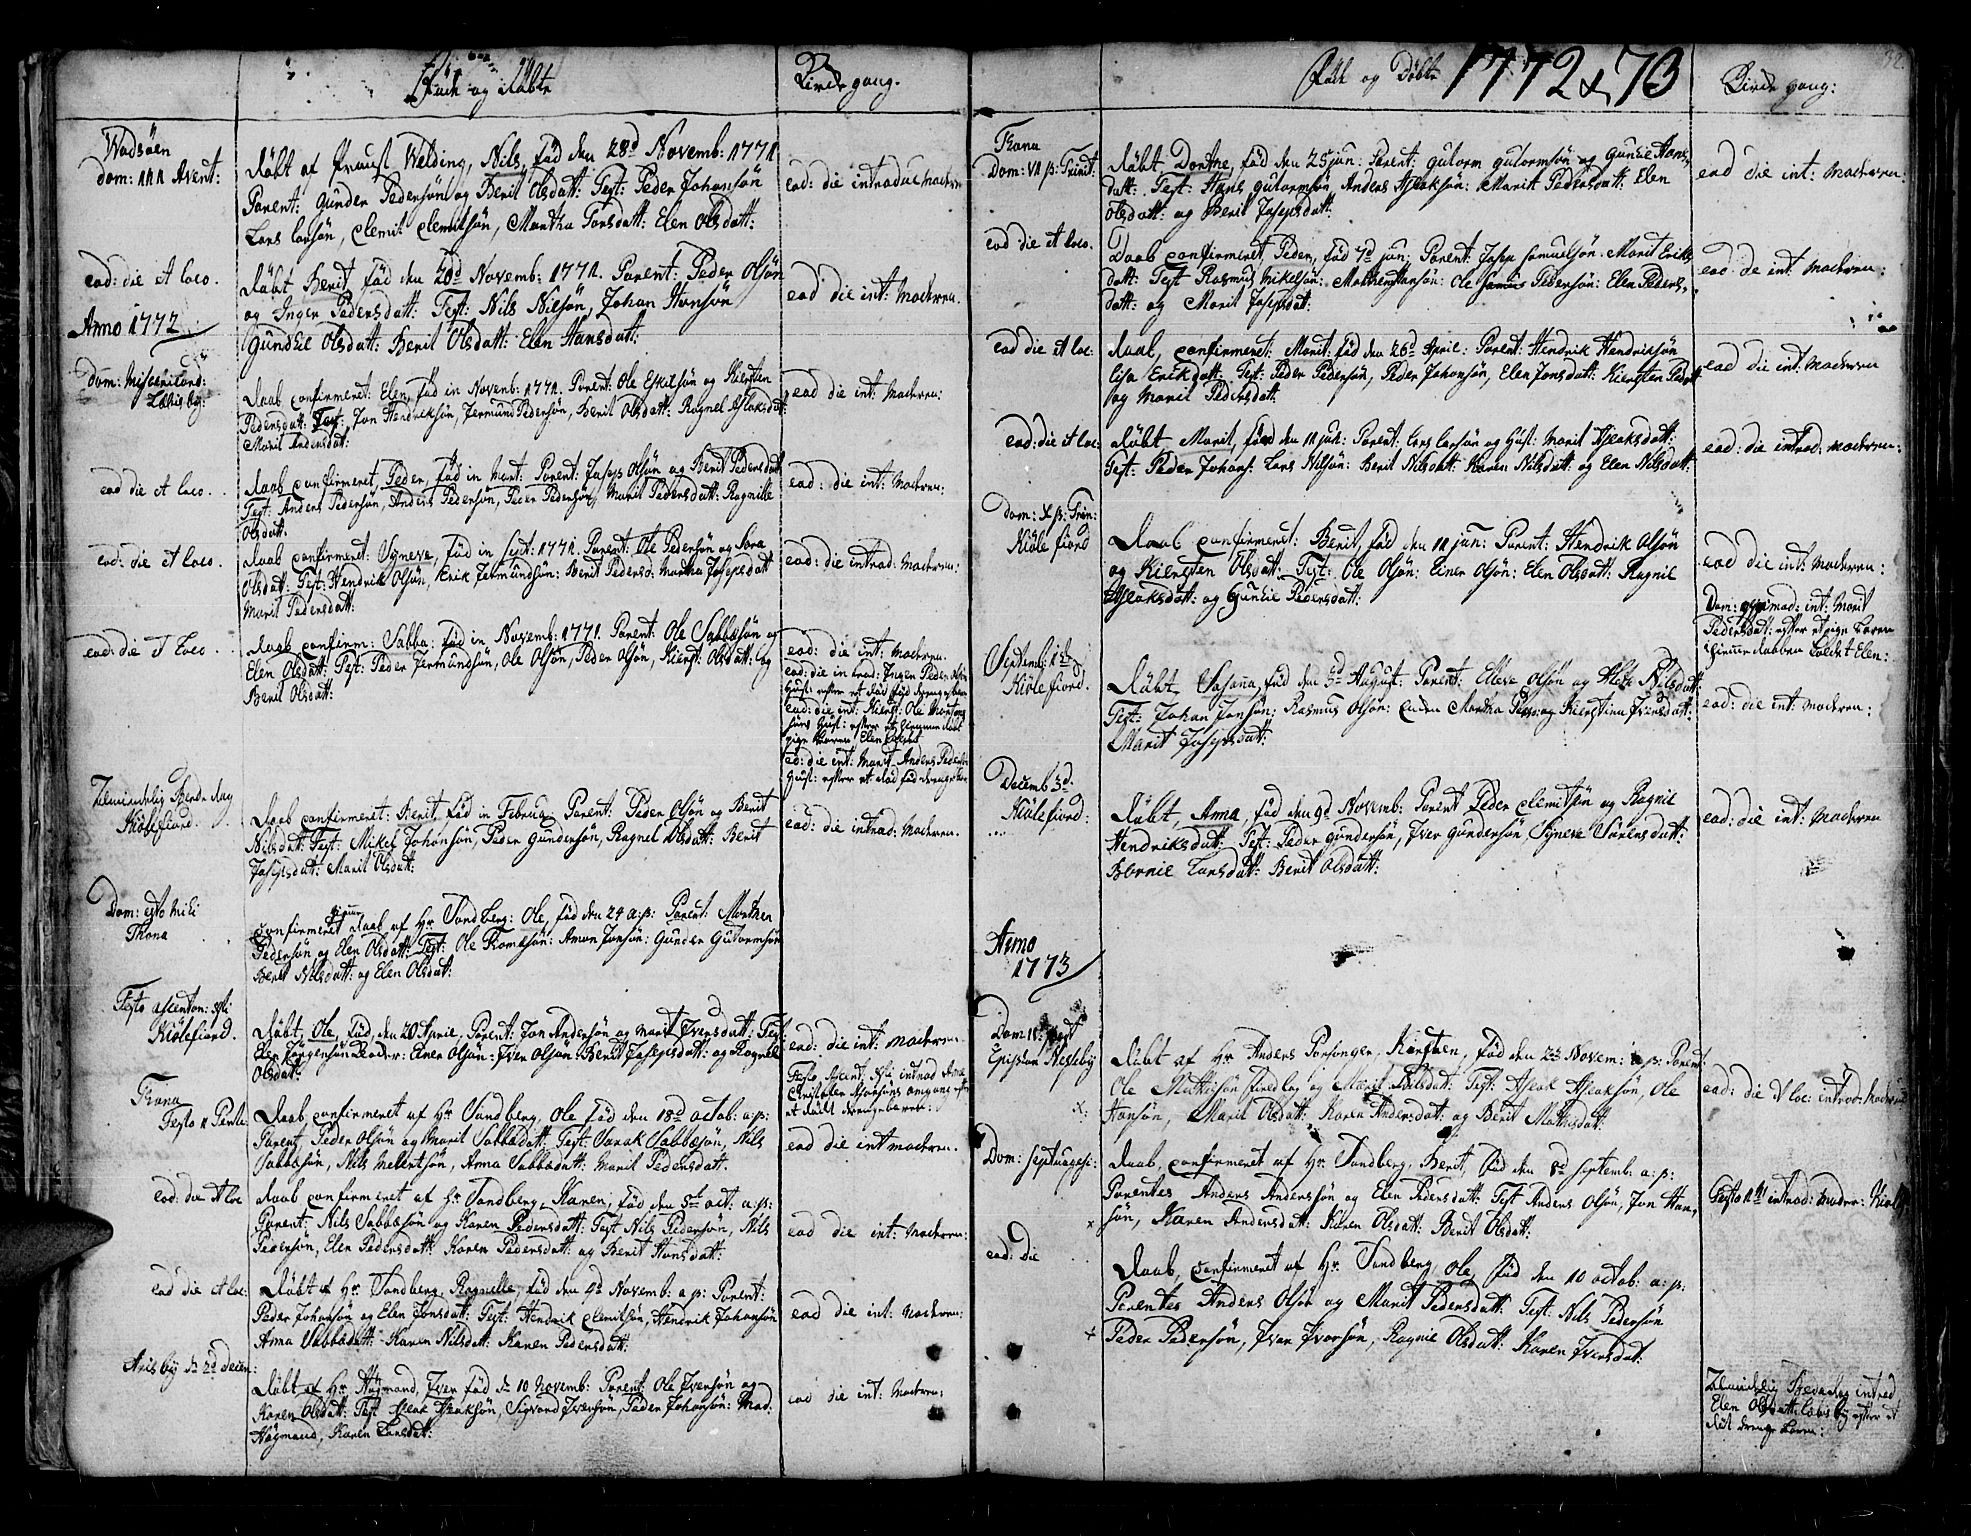 Föde og Döbte
Kirke gang.
Wadsöen
dom: III Avent:
Döbt af Proust Welding, Nils, föd den 28d Novemb: 1771
Parent: Gunder Pedersön og Berit Olsdatt: Test: Peder Johansön
Lars Larsön, Clemit Clemitsön, Martha Larsdatt: Elen Olsdatt:
ead: die introduc Moderen
ead: die et loco.
Döbt Berit föd den 20d Novemb: 1771. Parent: Peder Olsön
og Inger Pedersdatt: Test: Nils Nilsön, Johan Hansön
Gundie Olsdatt: Berit Olsdatt: Elen Hansdatt:
ead die int: Moderen.
Anno 1772
Dom: Misericord:
Daab confirmeret: Elen, föd in Novemb: 1771. Parent: Ole Eskilsön og Kiersten
Pedersdatt: Test: Jon Hendriksön, Jermund Pedersön, Berit Olsdatt: Ragnel Aslaksdat
Marit Andersdatt:
ead: die int: Moderen:
ead die et loco.
Daab confirmeret, Peder, föd in Mart: Parent: Joseps Olsön og Berit Pedersdatt
Test: Anders Pedersön, Anders Pedersön, Peder Pedersön, Marit Pedersdatt: Ragnille
Olsdatt:
ead: die int: Moderen:
ead: die et loco.
Daab confirmeret: Syneva, föd in Sept: 1771. Parent: Ole Pedersön og Sara
Olsdatt: Test: Hendrik Olsön, Erik Jermundsön: Berit Pedersd: Martha Josepsdatt
Marit Pedersdatt:
ead: die introd: Moderen:
ead: die et Loco.
Daab confirm: Sabba: föd in Novemb: 1771. Parent: Ole Sabbasön og
Elen Olsdatt: Test: Peder Jermundsön, Ole Olsön, Peder Olsön, Kierst: Olsdatt: og
Berit Olsdatt:
ead: die int: Moderen.
ead: die introd: Inger Peder Olsöns
Hust: efter et död föd drengebarn
ead: die int: Kierst: Ole
Hust: efter et
pige Barn Elen
ead: die int: Marit Anders Peders
Hust: efter et död föd drengebarn
Almindelig Bede dag
Kiölefiord.
Daab confirmeret: Berit, föd in Februa: Parent: Peder Olsön og Berit
Nilsdatt: Test: Mikel Johansön, Peder Gundersön, Ragnel Olsdatt: Berit
Josepsdatt: Marit Olsdatt:
ead: die introd: Moderen.
Dom: esto Mihi
Thana
confirmeret daab af Hr. Sandberg: Ole, föd den 24 a: p: Parent: Morthen
Pedersön og Elen Olsdatt: Test: Ole Thomasön: Amon Jonsön: Gunder Gutormsön
Berit Nilsdatt: og Elen Olsdatt:
Festo Ascenton: Xsti
Kiölefiord.
Döbt, Ole, föd, den 20 Parent: Jon Andersön og Marit Iversdatt: Test
Elen Einer Olsön: Iver Olsön Berit Josepsdatt: og Ragnele
Olsdatt:
ead: die int: Moderen.
Festo Ascent: Xsti introd Anna
et dödt drengebarn:
Thana
Festo II Pente:
Daab, confirmeret af Hr Sandberg, Ole föd den 18d octob: a:p:
Parent: Peder Olsön og Marit Sabbadatt: Test: Sarak Sabbasön, Nils
Sabbasön, Nils Mellertsön, Anna Sabbadatt: Marit Pedersdatt.
ead die int moderen.
ead: die et loc
daab confirmeret af Hr Sandberg, Karen, föd den 5t oct: a:p:
Parent: Nils Sabbasön og Karen Pedersdatt: Test Nils Pedersön, Nils
Pedersön, Elen Pedersdatt: Karen Pedersdatt: og Berit Hansdatt:
ead die int: Moderen:
ead die et loc:
Döbt af Hr Sandberg, Ragnille, föd den 9d Novemb: a: p: Parent:
Peder Johansön og Elen Jonsdatt: Test: Hendrik Clemitsön, Hendrik Johansön
Anna Sabbadatt: Karen Nilsdatt: Karen Pedersdatt:
ead die int: Moderen:
Arisby d. 2d deien:
Döbt af Hr. Högmand, Iver föd d. 10 Novemb: Parent: Ole Iversön og
Karen Olsdatt: Test: Aslak Aslaksön, Sigvard Iversön, Peder Johansön: Mad.
Högmand, Karen Larsdatt:
ead die int: Moderen:
Född og Döbte 1772 & 73
Kirke gang:
Thana
Dom: VI p: Trinit.
Döbt Dorthe, föd den 25 jun: Parent: Gutorm Gutormsön og Gundie Hans,
datt: Test: Hans Gutormsön, Anders Aslaksön: Marit Pedersdatt: Elen
Olsdatt: og Berit Josepsdatt:
ead die int: Moderen:
ead die et loco.
Daab confirmeret, Peder, föd 7d jun: Parent: Josep Samuelsön: Marit Eriks
datt: Test Rasmus Mikelsön: Mathis Hansön: Ole Pedersön: Elen Peders,
datt: og Marit Josepsdat.
ead: de int: Moderen:
ead die et loc:
daab, confirmeret: Marit: föd den 26d April: Parent: Hendrik Hendriksön
Lisa Eriksdatt: Test: Peder Pedersön, Peder Johansön, Elen Jonsdatt: Kiersten Pedt
og Marit Pedersdatt.
ead die int: Moderen
ead: die et loc:
döbt Marit, föd den 11 jun: Parent: Lars Larsön og Hust: Marit Aslaksdatt:
Test: Peder Johans: Lars Nilsön: Berit Nilsdat: Karen Nilsdatt: og Elen Nilsdatt:
ead: die introd: Moderen:
Dom: X p: Trin:
Kiölefiord
Daab confirmeret: Berit, föd den 11 jun: Parent: Hendrik Olsön
og Kiersten Olsdatt: Test: Ole Olsön: Einer Olsön: Elen Olsdatt: Ragnil
Aslaksdatt: og Gundie Pedersdatt:
ead die int: Moderen:
Dom: int: Marit
Pedersdatt: efter et pige Barn
hieme döbten kaldet Elen:
Septemb: 1d
Kiölefiord.
Döbt Sosana, föd den 5d August: Parent: Elleve Olsön og Aleta Nilsdatt:
Test: Johan Jonsön: Rasmus Olsön: Martha Peders: og Kierstina Iversdatt:
Marit Josepsdatt:
ead: die int: Moderen:
Decemb 3d
Kiölefiord:
Döbt, Anna, föd den 9d Novemb: Parent Peder Clemitsön og Ragnil
Hendriksdatt: Test: Peder Gundersön, Iver Gundersön, Syneva Sörensdatt:
Bernie Larsdatt: Berit Olsdatt:
ead: die int: Moderen
Anno
1773
Dom IV: post
Epiphan Nesseby
Döbt af Hr Anders Porsanger, Kirsten, föd den 23 Novem: a: p: Parent
Ole Mathisön og Marit Nilsdatt: Test: Aslak Aslaksön, Ole
Hansön, Marit Olsdatt: Karen Andersdatt: og Berit Mathisdatt:
ead: die et loc: introd: Moderen
Dom: Septuagesi:
Daab, confirmeret af Hr. Sandberg, Berit, föd den 8d Septemb: a: p:
Parentes Anders Andersön og Elen Pedersdatt: Test Anders Olsön, Jon Han,
sön, Karen Andersdatt: Karen Olsdatt: Berit Olsdatt:
Festo introd: Moder:
ead: die
Daab, confirmeret af Hr. Sandberg, Ole, föd den 10 octob: a: p:
Parentes Anders Olsön og Marit Pedersdatt: Test: Nils Pedersön
Peder Pedersön, Iver Iversön, Ragnie Olsdatt: Karen Iversdat:
Almindelig Bededag introd
Elen Olsdatt: efter et
död drenge barn: